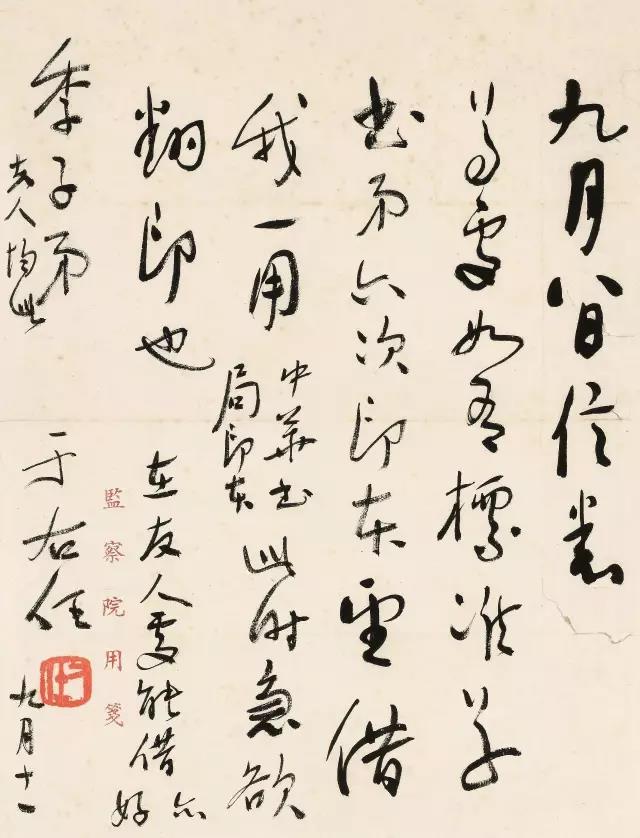 九月八日信悉
尊處如有標準草
書第六次印本望借
我一用
中華書
局印本
此時急欲
翻印也
在友人處能借亦
好
監察院用箋
季子弟
夫人均此
于右任
九月十一